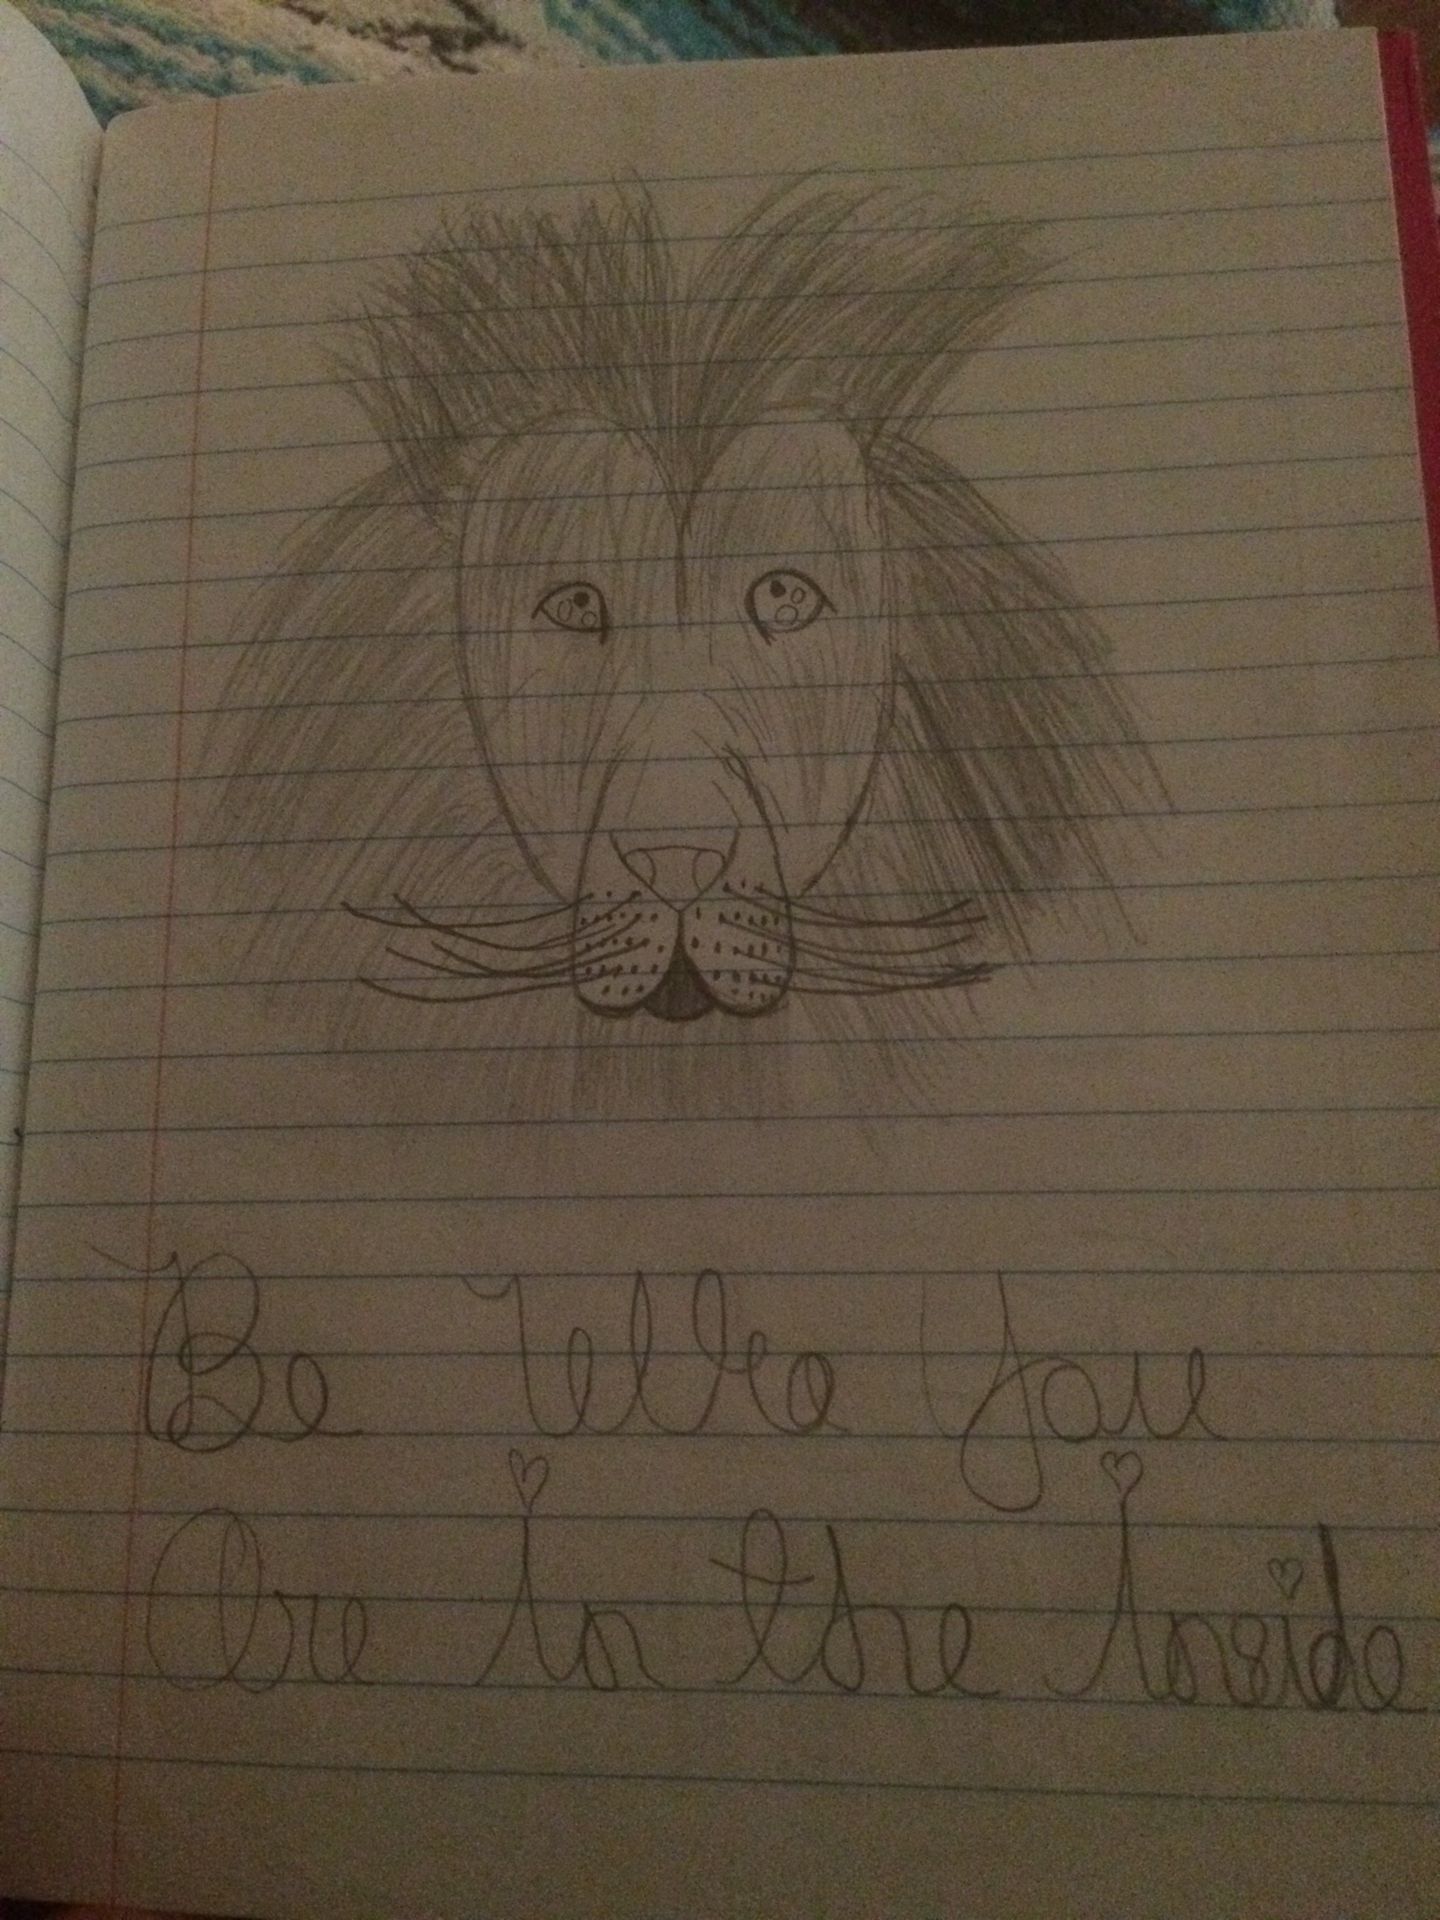 Be Who You
Are in the inside